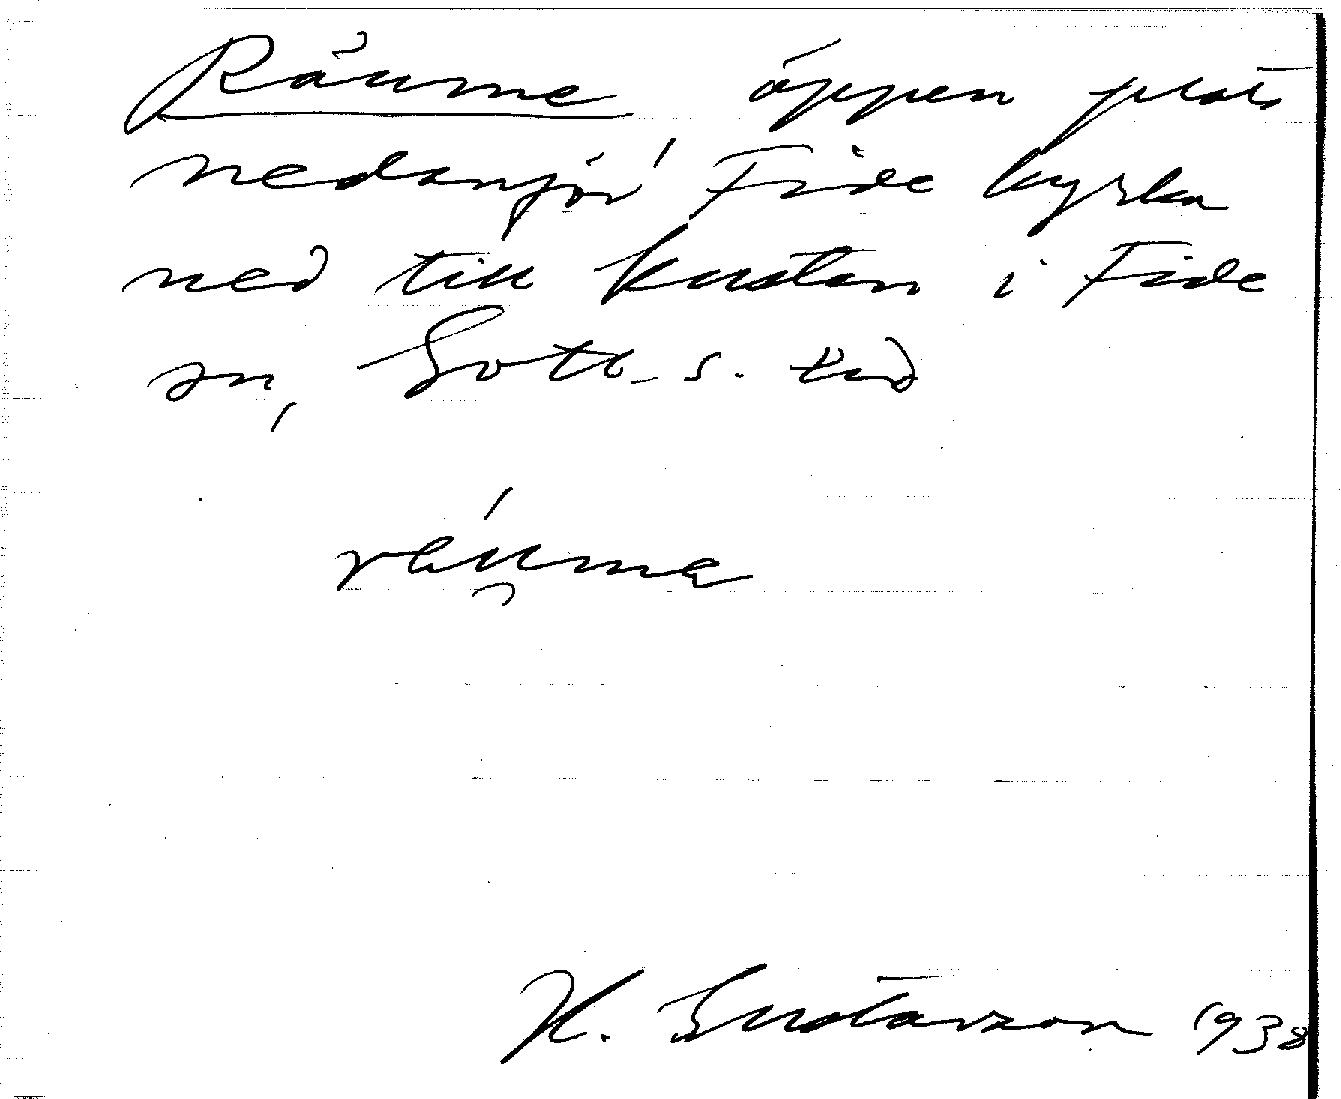 Råume öppen plats
nedanför Fide kyrka
ned till kusten i Fide
sn, Gotl. s.
räuma
H. Gustavson 1938